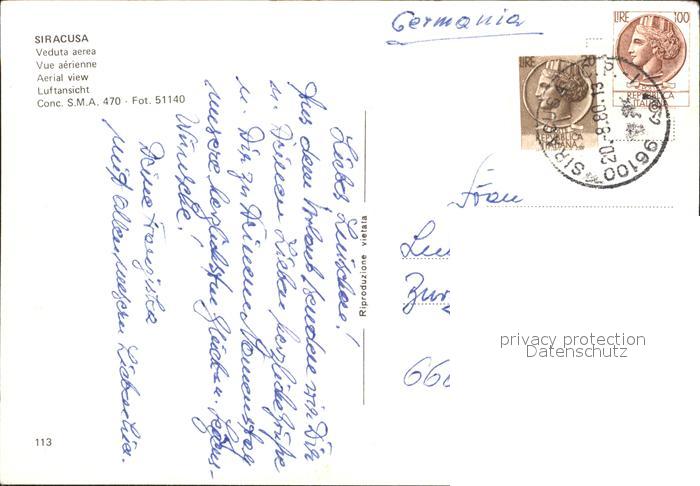 SIRACUSA
Veduta aerea
Vue aérienne
Aerial view
Luftansicht
Conc. S.M.A. 470 - Fot. 51140
Germania
LIRE
REPUBBLICA
ITALIANA
LIRE 100
REPUBBLICA
ITALIANA
96100 SIR
20.-8.80-19
Liebes Luischen!
Aus dem Urlaub senden wir Dir
u. Deinen Lieben herzliche Grüße
u. Dir zu Deinem Namenstag
unsere herzlichsten Glück- u. Segens-
Wünsche!
Deine Franziska
mit allen unseren Lieben
Riproduzione vietata
Frau
Lu
Zur
66
privacy protection
Datenschutz
113